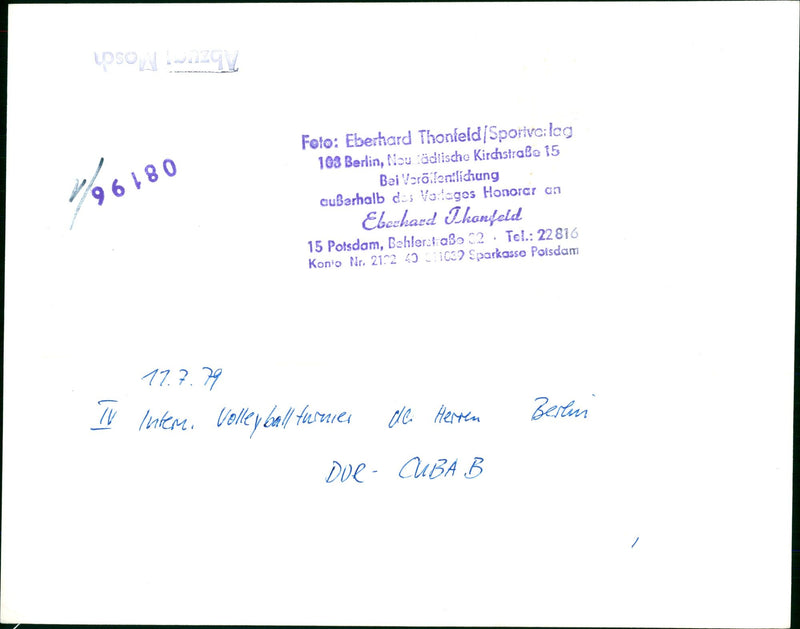 Abzug: Mosch
Foto: Eberhard Thonfeld/Sportverlag
108 Berlin, Neustädtische Kirchstraße 15
Bei Veröffentlichung
außerhalb des Verlages Honorar an
Eberhard Thonfeld
15 Potsdam, Behlertstraße 32 · Tel.: 22816
Konto Nr. 2132 40 Sparkasse Potsdam
08196
11.7.79
IV Intern. Volleyballturnier der Herren Berlin
DVR - CUBA B